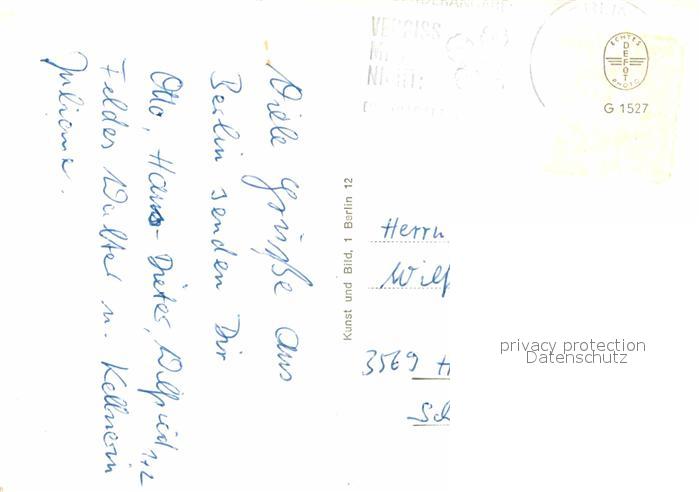 Viele Grüße aus
Berlin senden Dir
Otto, Hans-Dieter, Wilfried 1+2
Felder Walter u. Kellnerin
Juliane.
Kunst und Bild, 1 Berlin 12
VERGISS
NICHT:
ECHTES
DEFOT
PHOTO
G 1527
Herrn
Wilf
3569 H
Sch
privacy protection
Datenschutz